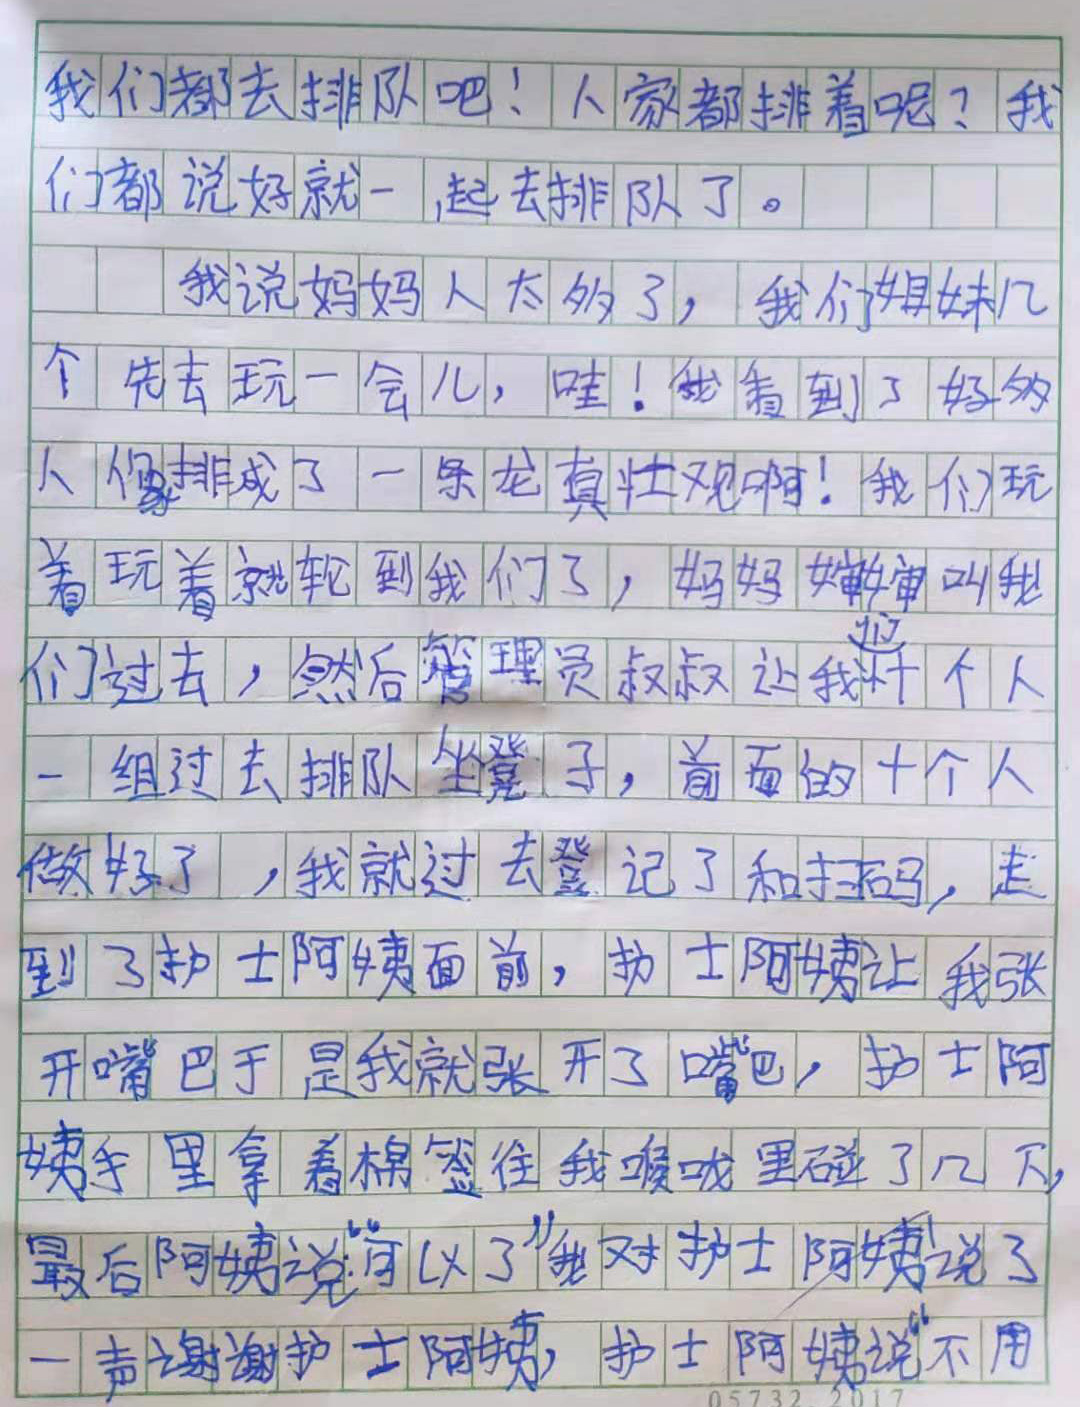 我们都去排队吧！人家都排着呢？我
们都说好就一起去排队了。
我说妈妈人太多了，我们姐妹几
个先去玩一会儿，哇！我看到了好多
人像排成了一条龙真壮观啊！我们玩
着玩着就轮到我们了，妈妈婶婶叫我
们过去，然后管理员叔叔让我们过十个人
一组过去排队坐凳子，前面的十个人
做好了，我就过去登记了和扫码，走
到了护士阿姨面前，护士阿姨让我张
开嘴巴于是我就张开了嘴巴，护士阿
姨手里拿着棉签往我喉咙里碰了几下，
最后阿姨说：“可以了”我对护士阿姨说了
一声谢谢护士阿姨，护士阿姨说“不用
05732.2017